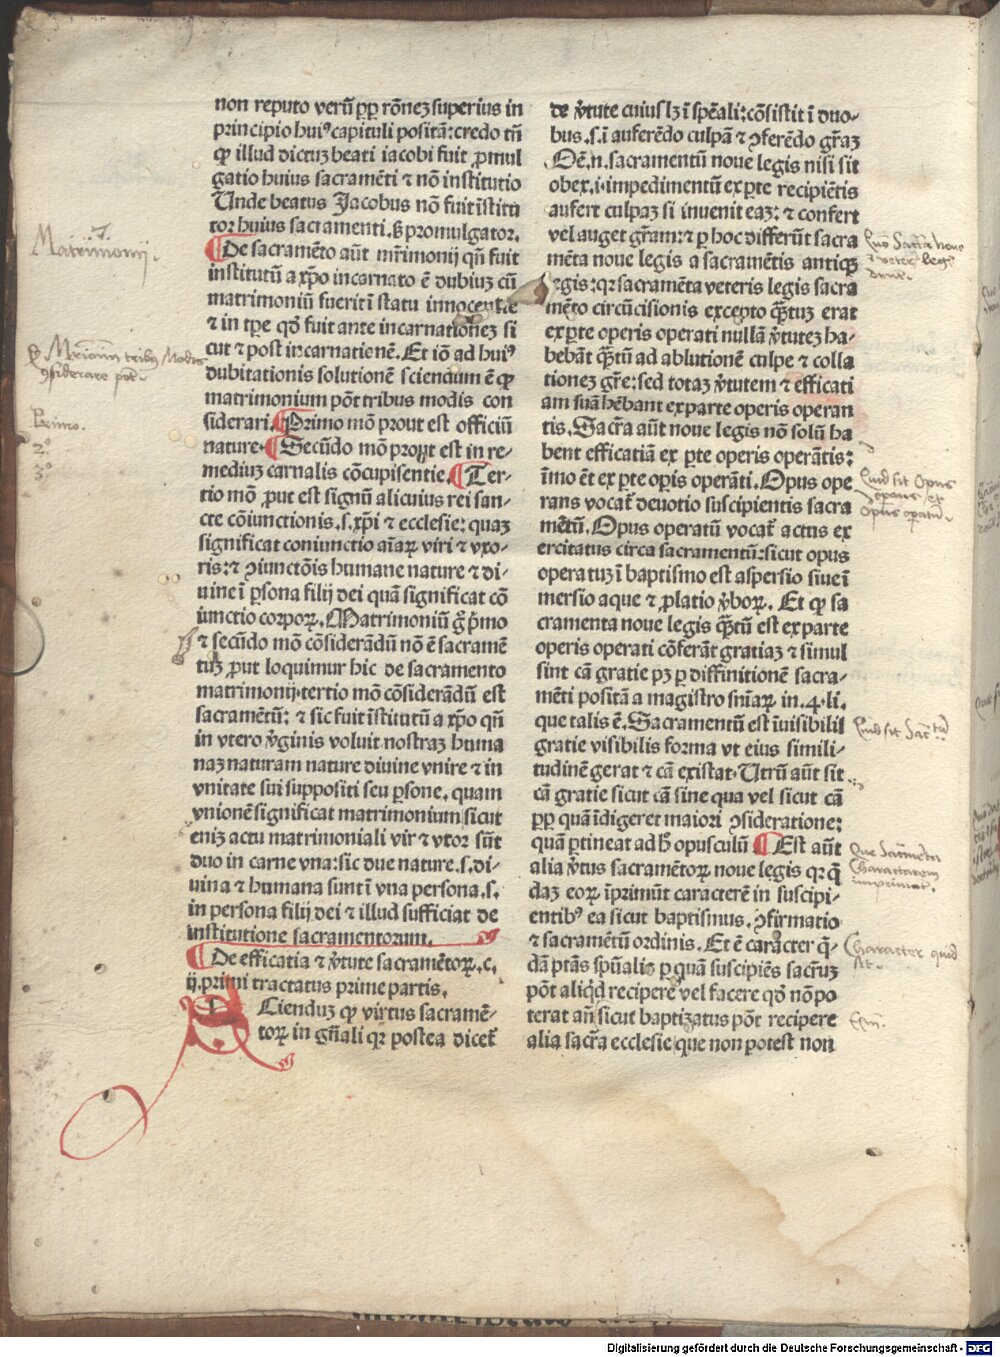 non reputo verū ꝓꝑ rōnez superius in
principio huiꝰ capituli positā: credo tñ
ꝙ illud dictuz beati iacobi fuit ꝓmul
gatio huius sacramēti ⁊ nō institutio
Unde beatus Jacobus nō fuit īstitu
tor huius sacramenti. sꝫ promulgator.
De sacramēto aūt mr̄imonij qñ fuit
institutū a xp̄o incarnato ē dubiuz cū
matrimoniū fuerit ī statu innocentie
⁊ in tꝑe qd̓ fuit ante incarnationez si
cut ⁊ post incarnationē. Et iō ad huiꝰ
dubitationis solutionē sciendum ē ꝙ
matrimonium pōt tribus modis con
siderari. Primo mō prout est officiū
nature. Secūdo mō prout est in re-
medium carnalis cōcupisentie. Ter-
tio mō ꝓut est signū alicuius rei san-
cte cōiunctionis .s. xp̄i ⁊ ecclesie: quaz
significat coniunctio aīaꝝ viri ⁊ vxo-
ris: ⁊ ꝯiunctōis humane nature ⁊ di-
uine ī ꝑsona filij dei quā significat cō
iunctio corpoꝝ. Matrimoniū g̊ p̄mo
⁊ secūdo mō cōsiderādū nō ē sacramē
tuz ꝓut loquimur hic de sacramento
matrimonij. tertio mō cōsiderādū est
sacramētū: ⁊ sic fuit īstitutū a xp̄o qñ
in vtero v̓ginis voluit nostraz huma
naz naturam nature diuine vnire ⁊ in
vnitate sui suppositi seu ꝑsone. quam
vnionē significat matrimonium sicut
eniz actu matrimoniali vir ⁊ vxor sūt
duo in carne vna: sic due nature .s. di-
uina ⁊ humana sunt ī vna persona .s.
in persona filij dei ⁊ illud sufficiat de
institutione sacramentorum.
De efficatia ⁊ v̓tute sacramētoꝝ. c.
ij. primi tractatus prime partis.
SCienduz ꝙ virtus sacramē-
toꝝ in gn̄ali qꝛ postea dicet̄
de v̓tute cuiuslꝫ ī spēali: cōsistit ī duo-
bus .s. ī auferēdo culpā ⁊ ꝯferēdo gr̄az
Oē .n. sacramentū noue legis nisi sit
obex .i. impedimentū ex ꝑte recipiētis
aufert culpaz si inuenit eaz: ⁊ confert
vel auget gr̄am: ⁊ ꝑ hoc differūt sacra
mēta noue legis a sacramētis antiq̄
legis: qꝛ sacramēta veteris legis sacra
mēto circūcisionis excepto q̄ꝫtuz erat
ex ꝑte operis operati nullā v̓tutez ha-
bebāt q̄ꝫtū ad ablutionē culpe ⁊ colla
tionez gr̄e: sed totaz v̓tutem ⁊ efficati
am suā hēbant ex parte operis operan
tis. Sacr̄a aūt noue legis nō solū ha
bent efficatiā ex ꝑte operis operātis:
īmo ēt ex ꝑte oꝑis operāti. Opus ope
rans vocat̄ deuotio suscipientis sacra
mētū. Opus operatū vocat̄ actus ex
ercitatus circa sacramentū: sicut opus
operatuz ī baptismo est aspersio siue ī
mersio aque ⁊ ꝓlatio v̓boꝝ. Et ꝙ sa
cramenta noue legis q̄ꝫtū est ex parte
operis operati cōferāt gratiaz ⁊ simul
sint cā gratie pꝫ ꝑ diffinitionē sacra-
mēti positā a magistro sn̄iaꝝ in .4. li.
que talis ē. Sacramentū est īuisibilis
gratie visibilis forma vt eius simili-
tudinē gerat ⁊ cā existat. Utrū aūt sit
cā gratie sicut cā sine qua vel sicut cā
ꝓꝑ quā īdigeret maiori ꝯsideratione:
quā ꝑtineat ad hͦ opusculū Est aūt
alia v̓tus sacramētoꝝ noue legis qꝛ q̄
daz eoꝝ īprimūt caracterē in suscipi-
entibꝰ ea sicut baptismus. ꝯfirmatio
⁊ sacramētū ordinis. Et ē caracter q̄-
dā ptās spūalis ꝑ quā suscipiēs sacr̄uz
pōt aliqd̓ recipere vel facere qd̓ nō po
terat añ sicut baptizatus pōt recipere
alia sacr̄a ecclesie que non potest non
Matrimonij.
Mr̄imoniū tribus Modis
ꝯsiderare pōt.
Primo.
2º
3º
Quid sit Opus
operans et
opus operatū.
Quid sit Sacr̄tū
Que Sacramēta
Characterem
imprimāt.
Character quid
sit.
Digitalisierung gefördert durch die Deutsche Forschungsgemeinschaft - DFG